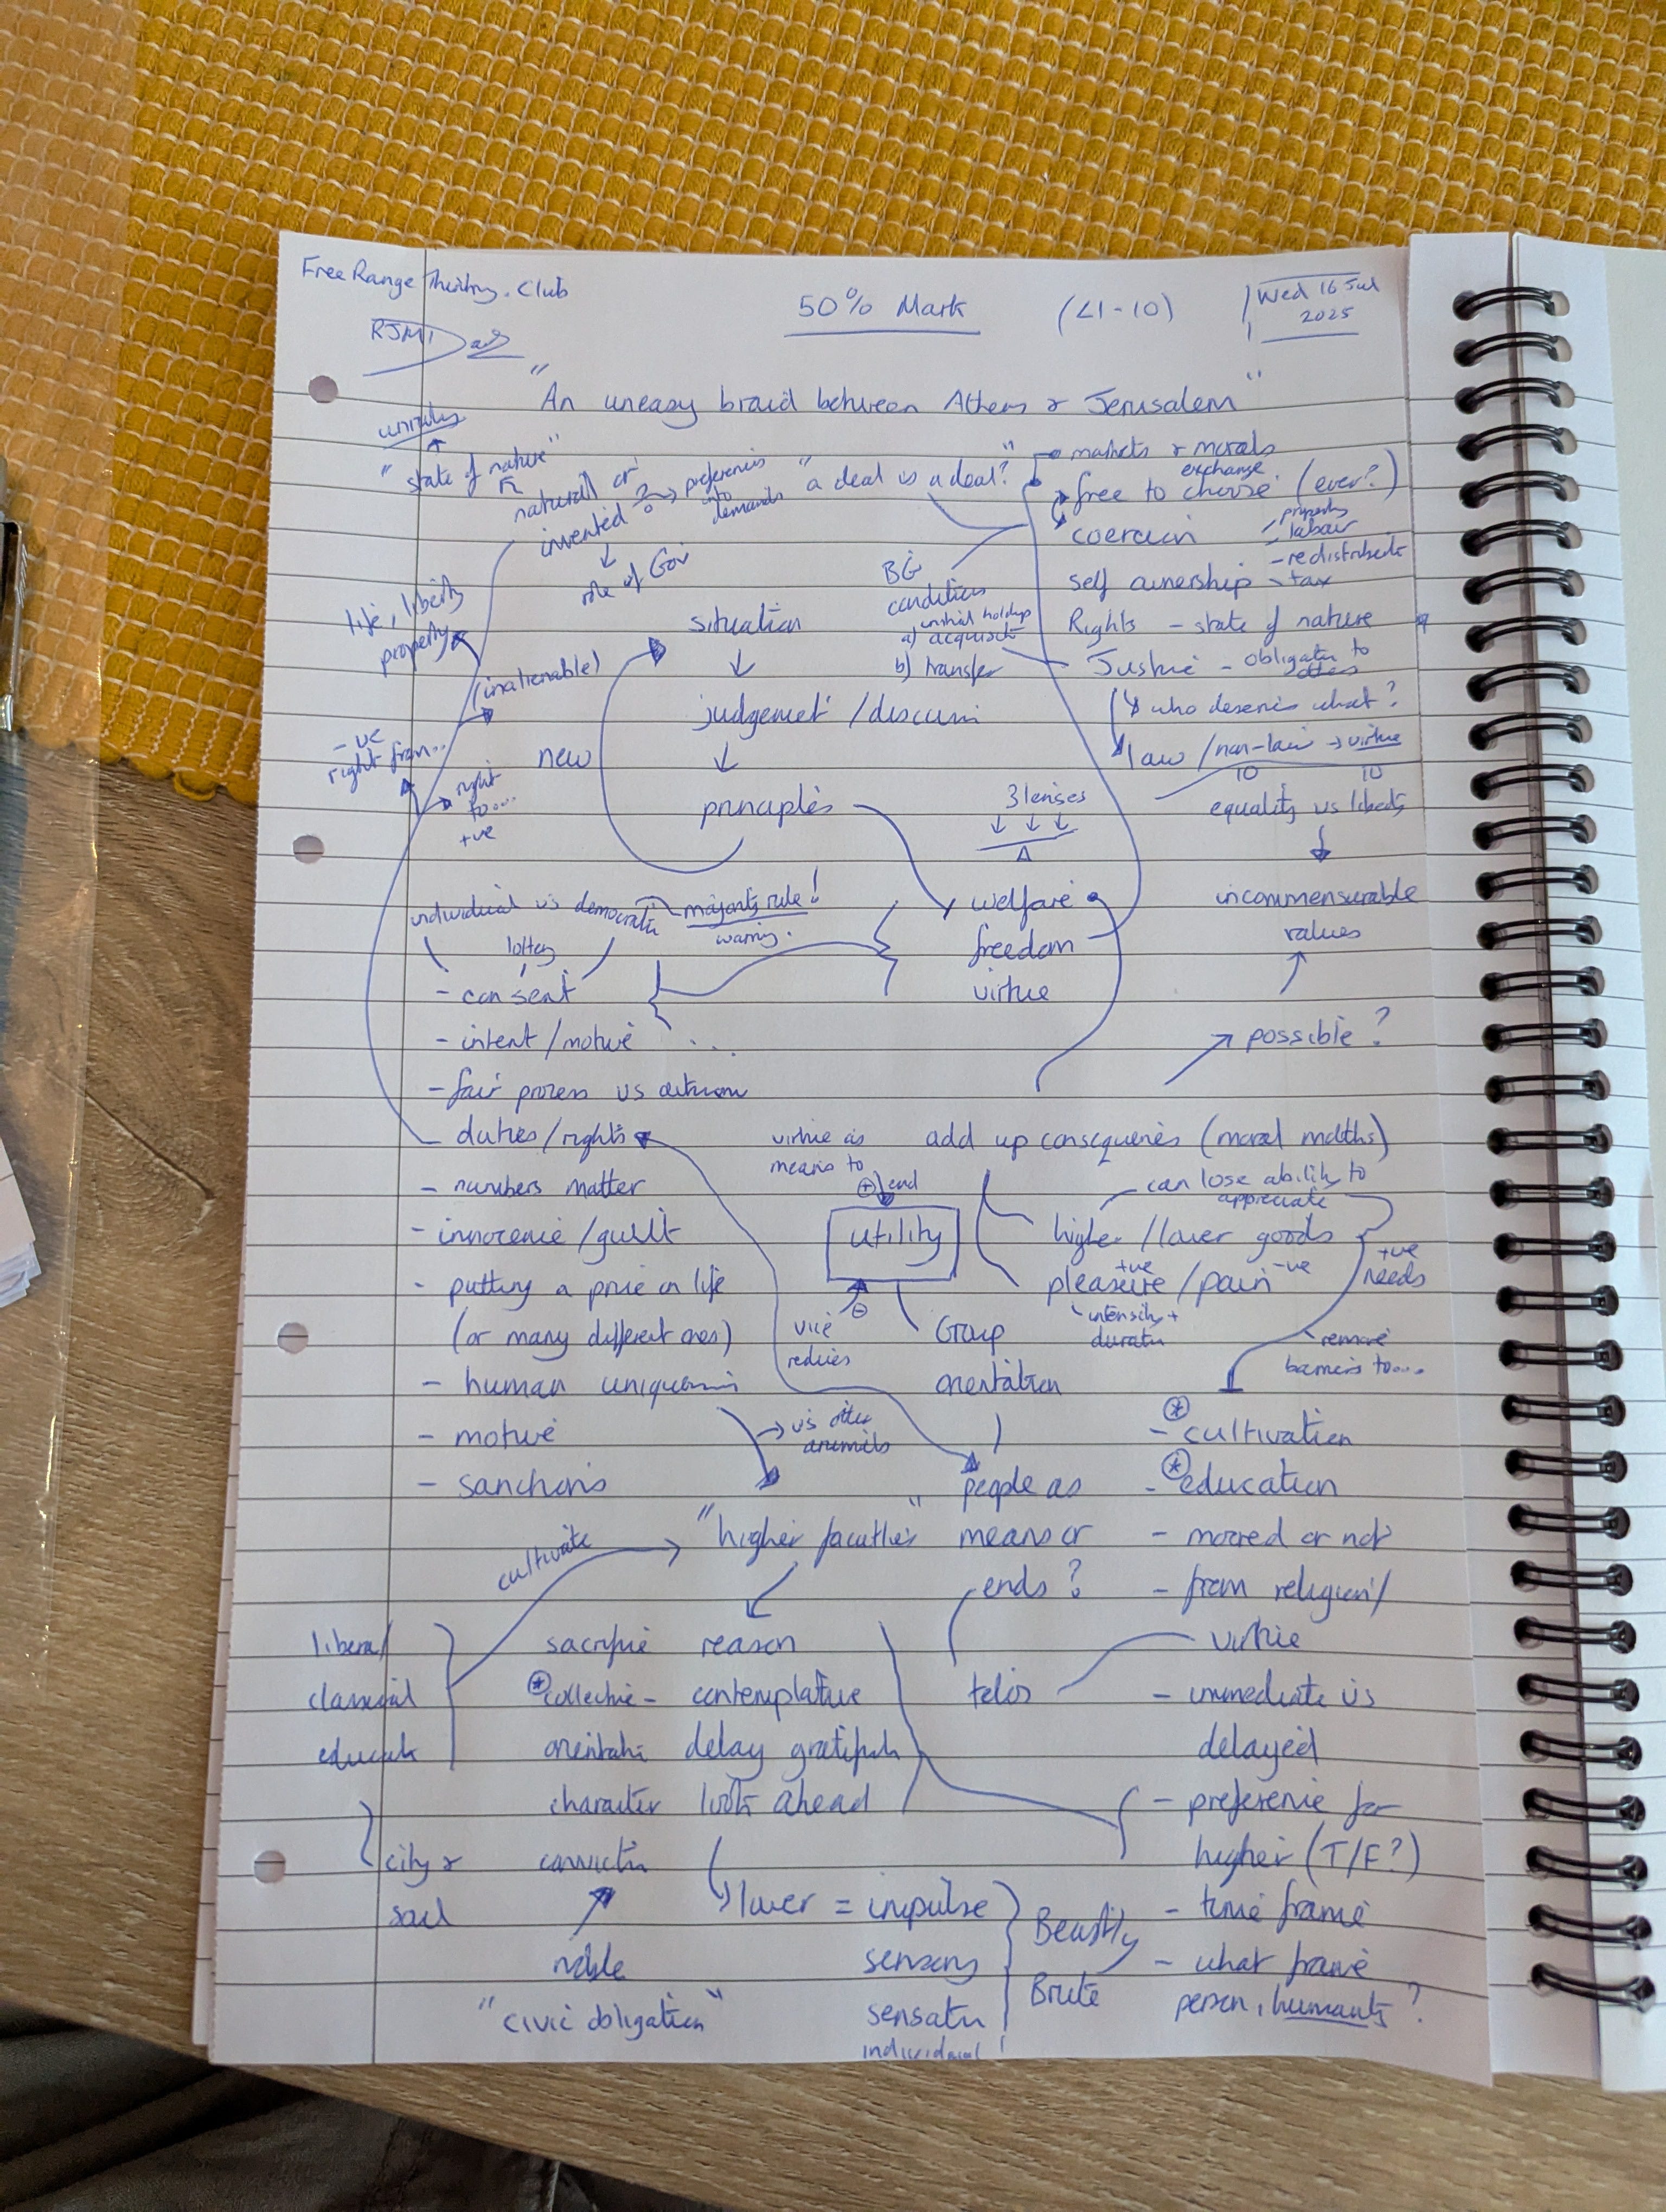 Free Range Thinking. Club
50% Mark
(L1-10)
Wed 16 Jul
2025
RJM
"An uneasy braid between Athens & Jerusalem"
unruly
"state of nature"
natural or
invented ?
preferences
into
demands
role of Gov
"a deal is a deal?"
markets & morals
exchange
free to choose (ever?)
coercion
property
labour
- redistribute
self ownership - tax
Rights - state of nature
Justice - obligation to
others
who deserves what?
law / non-law → virtue
10 10
equality vs liberty
incommensurable
values
possible?
BG
condition
initial holdings
a) acquisit
b) transfer
life, liberty
property
(inalienable)
-ve
right from...
right
to...
+ve
new
situation
judgement / discussi
principles
3 lenses
welfare
freedom
virtue
individual vs democratic
majority rule!
warning.
lottery
- consent
- intent / motive
...
- fair process vs outcome
duties / rights
- numbers matter
- innocence / guilt
- putting a price on life
(or many different ones)
- human uniqueness
→ vs other
animals
- motive
- sanctions
virtue as
means to
+ end
utility
vice
reduces
add up consequences (moral maths)
can lose ability to
appreciate
higher / lower goods
+ve -ve
pleasure / pain
intensity +
duratn
+ve
needs
remove
barriers to....
Group
orientation
people as
means or
ends?
telos
- cultivation
- education
- moral or not
- from religion /
virtue
- immediate vs
delayed
- preference for
higher (T/F?)
- time frame
- what frame
person, humanity?
"higher faculties"
cultivate
liberal /
classical
educatn
city &
soul
sacrifice
collective -
orientatn
character
convictn
noble
"civic obligation"
reason
contemplative
delay gratificatn
look ahead
lower = impulse
sensory
sensatn
individual!
Beastly
Brute